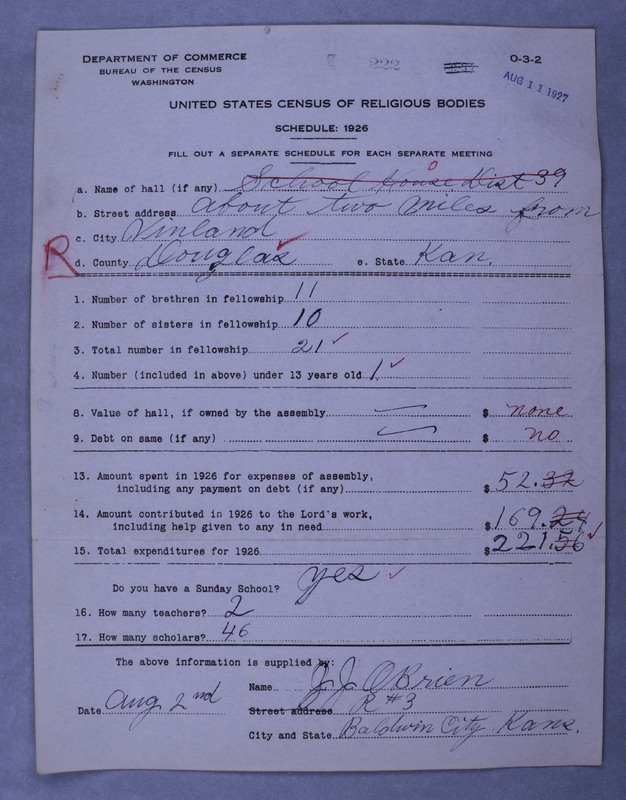 DEPARTMENT OF COMMERCE
BUREAU OF THE CENSUS
WASHINGTON
222
O-3-2
AUG 11 1927
UNITED STATES CENSUS OF RELIGIOUS BODIES
SCHEDULE: 1926
FILL OUT A SEPARATE SCHEDULE FOR EACH SEPARATE MEETING
a. Name of hall (if any) School House Dist 39
b. Street address about two miles from
c. City Vinland
R
d. County Douglas e. State Kan.
1. Number of brethren in fellowship 11
2. Number of sisters in fellowship 10
3. Total number in fellowship 21
4. Number (included in above) under 13 years old 1
8. Value of hall, if owned by the assembly $ none
9. Debt on same (if any) $ no
13. Amount spent in 1926 for expenses of assembly,
including any payment on debt (if any) $ 52.32
14. Amount contributed in 1926 to the Lord's work,
including help given to any in need $ 169.24
15. Total expenditures for 1926 $ 221.56
Do you have a Sunday School? yes
16. How many teachers? 2
17. How many scholars? 46
The above information is supplied by:
Name J.J. O'Brien
Date Aug 2nd Street address R #3
City and State Baldwin City Kans.